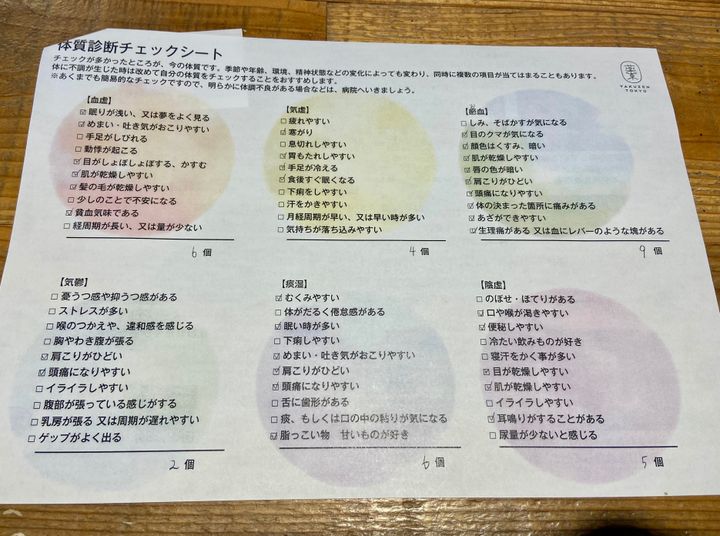 体質診断チェックシート
チェックが多かったところが、今の体質です。季節や年齢、環境、精神状態などの変化によっても変わり、同時に複数の項目が当てはまることもあります。
体に不調が生じた時は改めて自分の体質をチェックすることをおすすめします。
※あくまでも簡易的なチェックですので、明らかに体調不良がある場合などは、病院へいきましょう。
YAKUZEN
TOKYO
【血虚】
☑眠りが浅い、又は夢をよく見る
☑めまい・吐き気がおこりやすい
□手足がしびれる
□動悸が起こる
☑目がしょぼしょぼする、かすむ
☑肌が乾燥しやすい
☑髪の毛が乾燥しやすい
□少しのことで不安になる
☑貧血気味である
□経周期が長い、又は量が少ない
6個
【気虚】
□疲れやすい
☑寒がり
□息切れしやすい
☑胃もたれしやすい
☑手足が冷える
☑食後すぐ眠くなる
□下痢をしやすい
□汗をかきやすい
□月経周期が早い、又は早い時が多い
□気持ちが落ち込みやすい
4個
【瘀血】
□しみ、そばかすが気になる
☑目のクマが気になる
☑顔色はくすみ、暗い
☑肌が乾燥しやすい
☑唇の色が暗い
☑肩こりがひどい
☑頭痛になりやすい
☑体の決まった箇所に痛みがある
☑あざができやすい
☑生理痛がある 又は血にレバーのような塊がある
9個
【気鬱】
□憂うつ感や抑うつ感がある
□ストレスが多い
□喉のつかえや、違和感を感じる
□胸やわき腹が張る
☑肩こりがひどい
☑頭痛になりやすい
□イライラしやすい
□腹部が張っている感じがする
□乳房が張る 又は周期が遅れやすい
□ゲップがよく出る
2個
【痰湿】
☑むくみやすい
□体がだるく倦怠感がある
☑眠い時が多い
□下痢しやすい
☑めまい・吐き気がおこりやすい
☑肩こりがひどい
☑頭痛になりやすい
□舌に歯形がある
□痰、もしくは口の中の粘りが気になる
☑脂っこい物 甘いものが好き
6個
【陰虚】
□のぼせ・ほてりがある
☑口や喉が渇きやすい
☑便秘しやすい
□冷たい飲みものが好き
□寝汗をかく事が多い
☑目が乾燥しやすい
☑肌が乾燥しやすい
□イライラしやすい
☑耳鳴りがすることがある
□尿量が少ないと感じる
5個